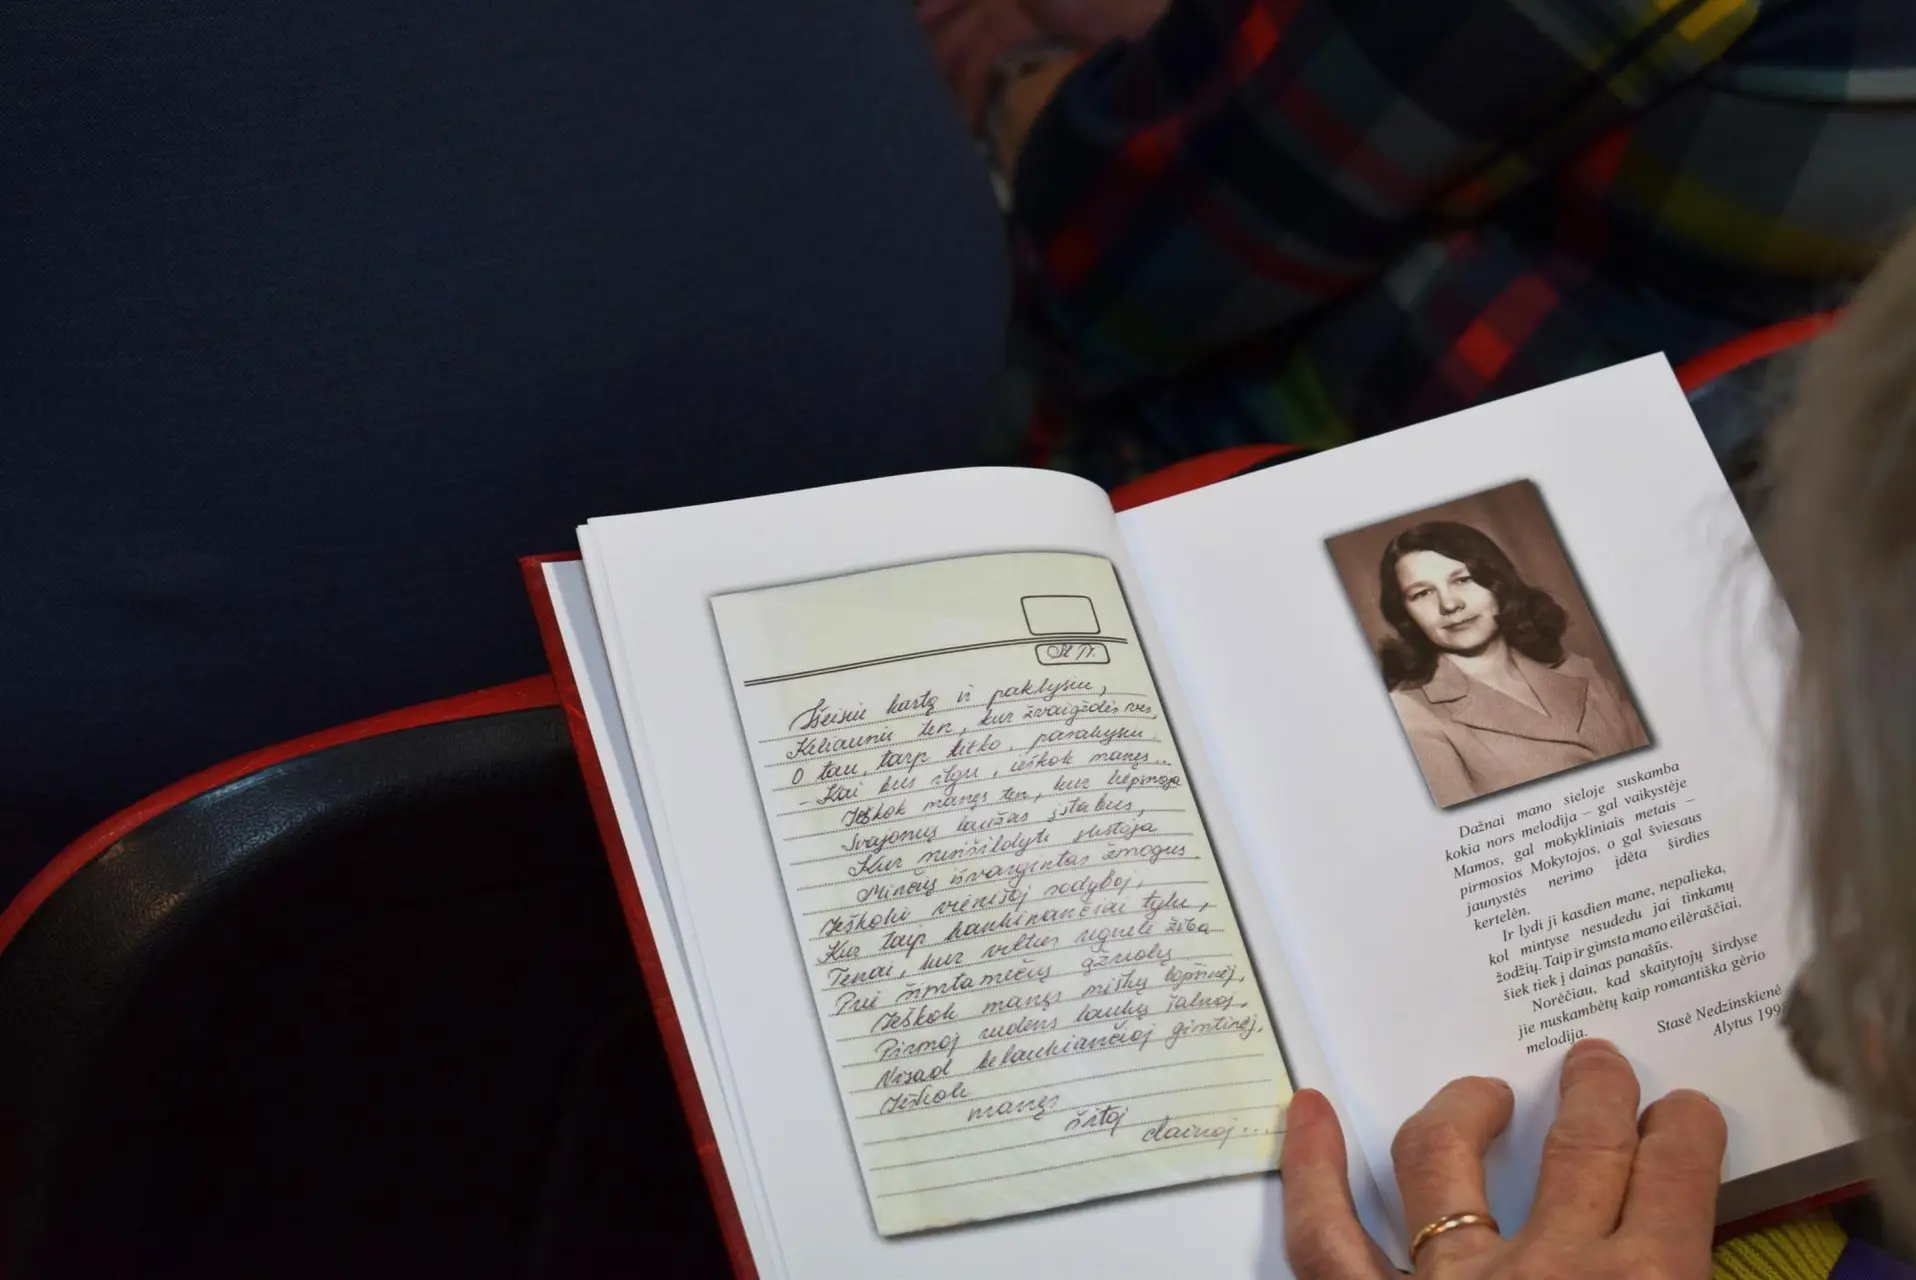 St. N.
Išeisiu kartą ir paklysiu,
Keliausiu ten, kur žvaigždės ves,
O tau, tarp kitko, parašysiu
- Kai bus ilgu, ieškok manęs...
Ieškok manęs ten, kur liepsnoja
Svajonių laužas įstabus,
Kur susišildyti sustoja
Minčių išvargintas žmogus.
Ieškoki vienišoj sodyboj,
Kur taip kankinančiai tylu,
Tenai, kur vilties ugnelė žiba
Prie šimtamečių ąžuolų
Ieškok manęs miškų lopšinėj,
Pirmoj rudens laukų šalnoj,
Visad belaukiančioj gimtinėj,
Ieškok
manęs
šitoj
dainoj...
Dažnai mano sieloje suskamba
kokia nors melodija – gal vaikystėje
Mamos, gal mokykliniais metais –
pirmosios Mokytojos, o gal šviesaus
jaunystės nerimo įdėta širdies
kertelėn.
Ir lydi ji kasdien mane, nepalieka,
kol mintyse nesudedu jai tinkamų
žodžių. Taip ir gimsta mano eilėraščiai,
šiek tiek į dainas panašūs.
Norėčiau, kad skaitytojų širdyse
jie nuskambėtų kaip romantiška gėrio
melodija.
Stasė Nedzinskienė
Alytus